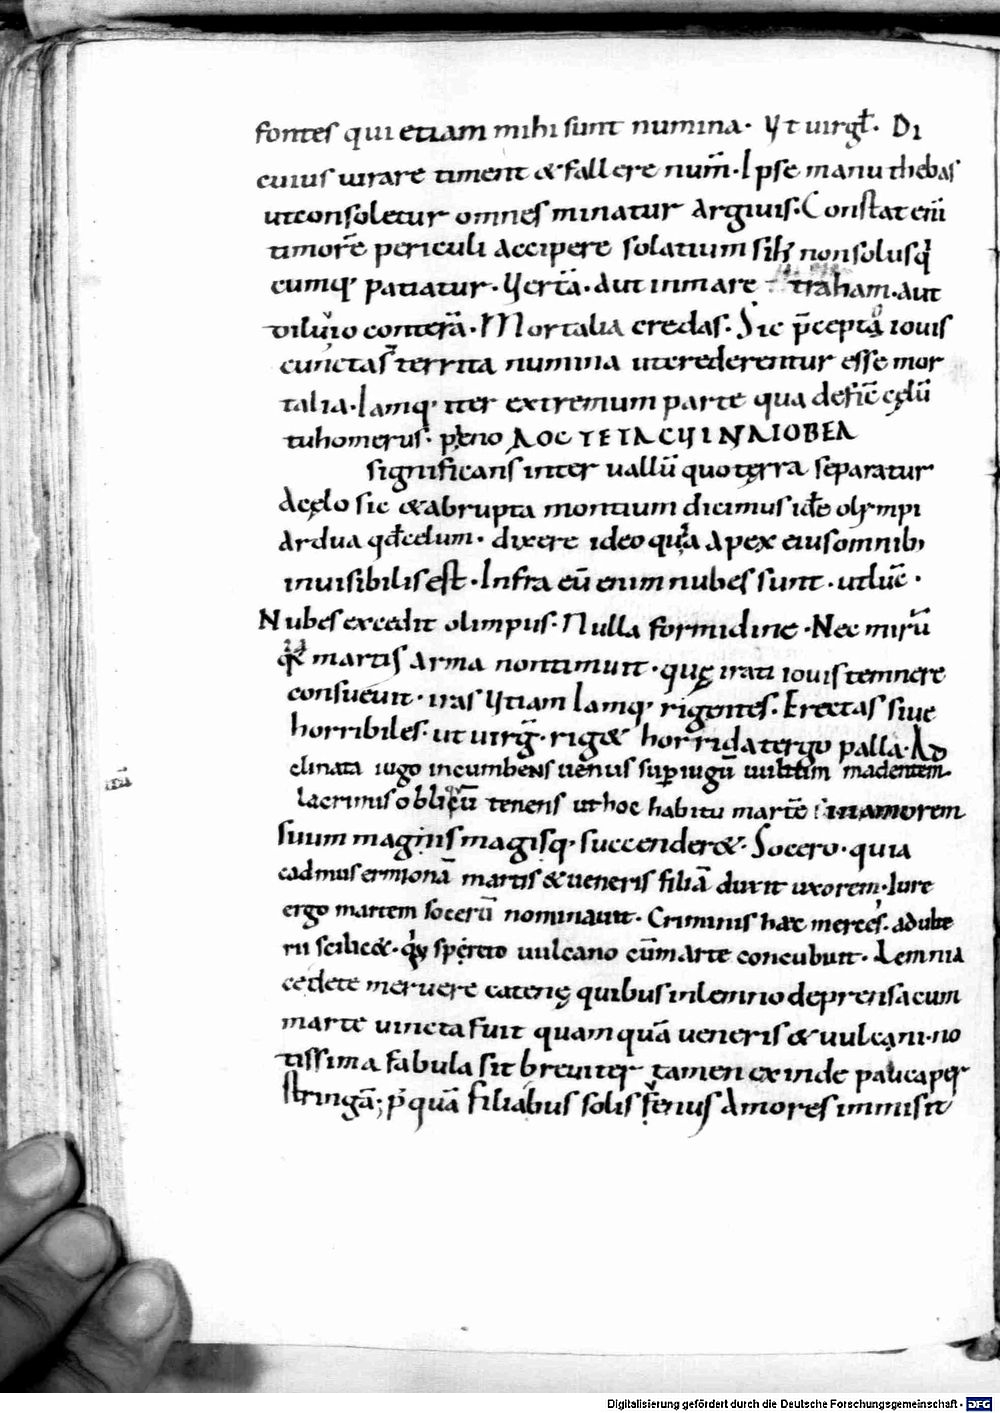 fontes qui etiam mihi sunt numina. Ut uirgł. Di
cuius iurare timent & fallere num̄. Ipse manu thebas
ut consoletur omnes minatur argiuis. Constat eni͞
timore periculi accipere solatium non solusq
cumq; patiatur. aut in mare traham. aut
diluuio conterā. Mortalia credas. Sic p̄cepta iouis
cunctas territa numina ut crederentur esse mor
talia. Iamq; iter extremum parte qua deficē cęlū
tuhomerus.
significans inter uallū quo terra separatur
A cęlo sic & abrupta montium dicimus olympi
Ardua qd̄ celum. dixere ideo quia apex eius omnib;
inuisibilis est. Infra eū enim nubes sunt. ut lūc.
Nubes excedit olimpus. Nulla formidine. Nec mirū
martis arma non timuit. quę irati iouis temnere
consueuit. iras Iamq; rigentes. Erectas siue
horribiles. ut uirg̅. rig& horrida tergo palla. Ad
clinata iugo incumbens uenus sup iugū uultum madentem.
lacrimis obliqū tenens ut hoc habitu marte in amorem
suum maginis magisq; succender&. Socero. quia
cadmus ermionā martis & ueneris filiā duxit uxorem. Iure
ergo martem socerū nominauit. Criminis haec merces. adulte
rii scilic&. spreto uulcano cū marte concubuit. Lemnia
cę dete meruere catenę quibus in lemno deprensa cum
marte uincta fuit quam quā ueneris & uulcani. no
tissima fabula sit breuiter tamen exinde pauca per
stringā; p̄ quā filiabus solis ferius Amores immisit